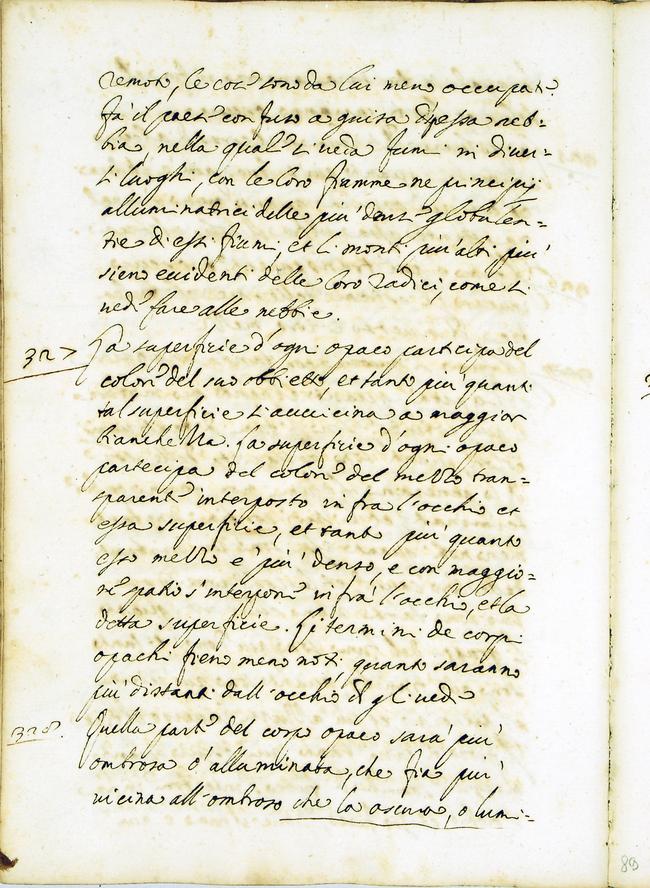 remoti, le cose sono da lui meno occupate
fà il paese confuso a guisa di spessa neb=
bia, nella quale si veda fumi in diver=
si luoghi, con le loro fiamme ne principij
alluminatrici delle più dense globulen=
tie di essi fiumi, et li monti più alti più
sieno evidenti delle loro radici, come si
vede fare alle nebbie.
327 La superficie d'ogni opaco participa del
colore del suo obbietto, et tanto più quanto
tal superficie s'avvicina a maggior
bianchezza. La superficie d'ogni opaco
partecipa del colore del mezzo tran=
sparente interposto infra l'occhio et
essa superficie, et tanto più quanto
esso mezzo è più denso, e con maggio=
re spatio s'interpone infrà l'occhio, et la
detta superficie. Li termini de corpi
opachi fieno meno noti, quanto saranno
più distanti dall'occhio che gli vede
328. Quella parte del corpo opaco sarà più
ombrosa ò alluminata, che fia più
vicina all'ombroso che la oscura, o lumi=
89